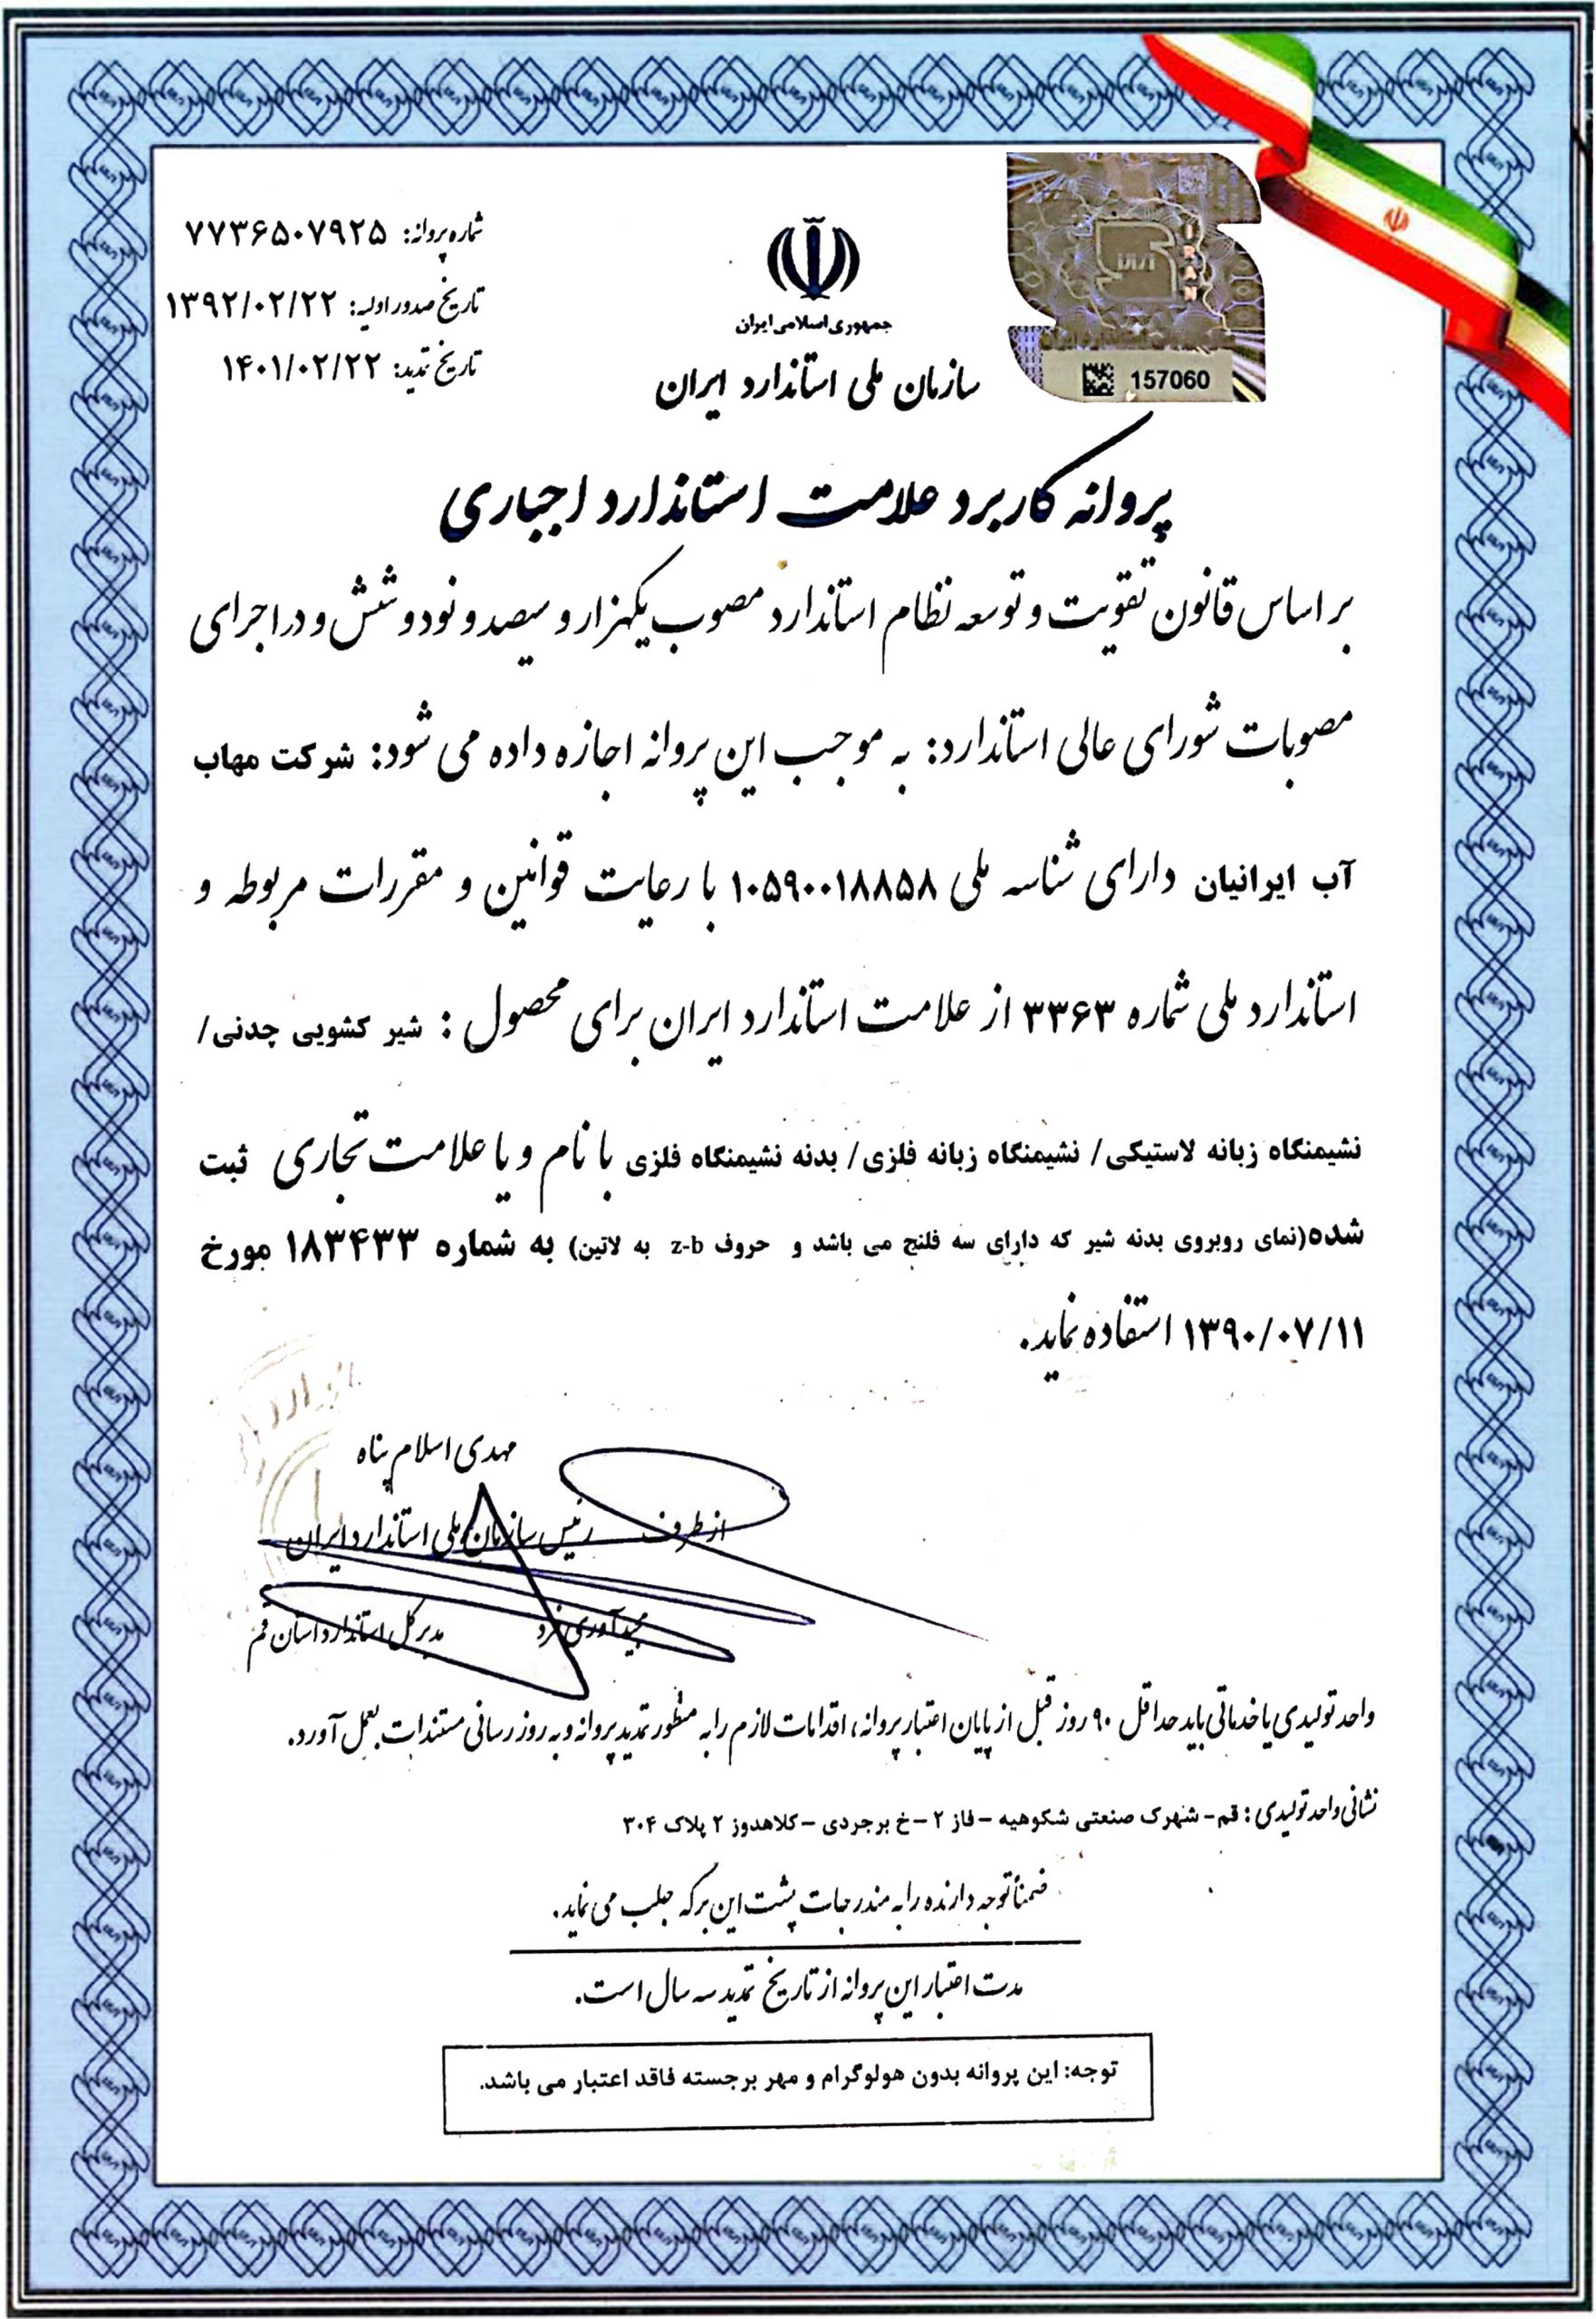 شماره پروانه: ۷۷۳۶۵۰۷۹۲۵
تاریخ صدور اولیه: ۱۳۹۲/۰۲/۲۲
تاریخ تمدید: ۱۴۰۱/۰۲/۲۲
جمهوری اسلامی ایران
سازمان ملی استاندارد ایران
IRAN
157060
پروانه کاربرد علامت استاندارد اجباری
بر اساس قانون تقویت و توسعه نظام استاندارد مصوب یکهزار و سیصد و نود و شش و در اجرای
مصوبات شورای عالی استاندارد: به موجب این پروانه اجازه داده می شود: شرکت مهاب
آب ایرانیان دارای شناسه ملی ۱۰۵۹۰۰۱۸۸۵۸ با رعایت قوانین و مقررات مربوطه و
استاندارد ملی شماره ۳۳۶۳ از علامت استاندارد ایران برای محصول : شیر کشویی چدنی/
نشیمنگاه زبانه لاستیکی/ نشیمنگاه زبانه فلزی/ بدنه نشیمنگاه فلزی با نام و یا علامت تجاری ثبت
شده(نمای روبروی بدنه شیر که دارای سه فلنج می باشد و حروف z-b به لاتین) به شماره ۱۸۳۴۳۳ مورخ
۱۳۹۰/۰۷/۱۱ استفاده نماید.
مهدی اسلام پناه
از طرف رئیس سازمان ملی استاندارد ایران
مجید آوری فرد مدیر کل استاندارد استان قم
واحد تولیدی یا خدماتی باید حداقل ۹۰ روز قبل از پایان اعتبار پروانه، اقدامات لازم را به منظور تمدید پروانه و به روز رسانی مستندات بعمل آورد.
نشانی واحد تولیدی : قم- شهرک صنعتی شکوهیه -فاز ۲ -خ برجردی -کلاهدوز ۲ پلاک ۳۰۴
ضمناً توجه دارنده را به مندرجات پشت این برگه جلب می نماید.
مدت اعتبار این پروانه از تاریخ تمدید سه سال است.
توجه: این پروانه بدون هولوگرام و مهر برجسته فاقد اعتبار می باشد.